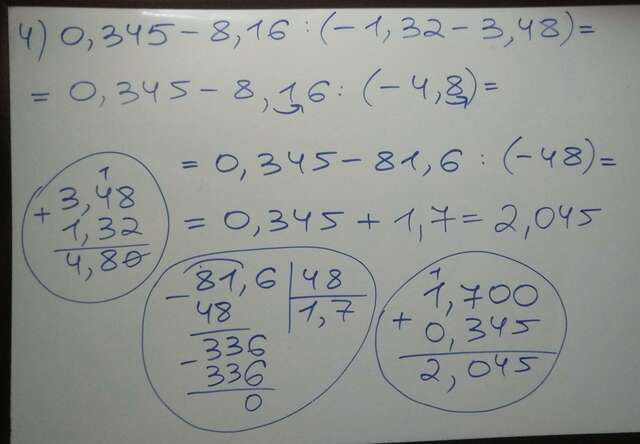 4) 0,345 - 8,16 : (-1,32 - 3,48) =
= 0,345 - 8,16 : (-4,8) =
= 0,345 - 81,6 : (-48) =
= 0,345 + 1,7 = 2,045
1
+ 3,48
1,32
4,80
- 81,6 | 48
48 | 1,7
- 336
336
0
1
1,700
+ 0,345
2,045